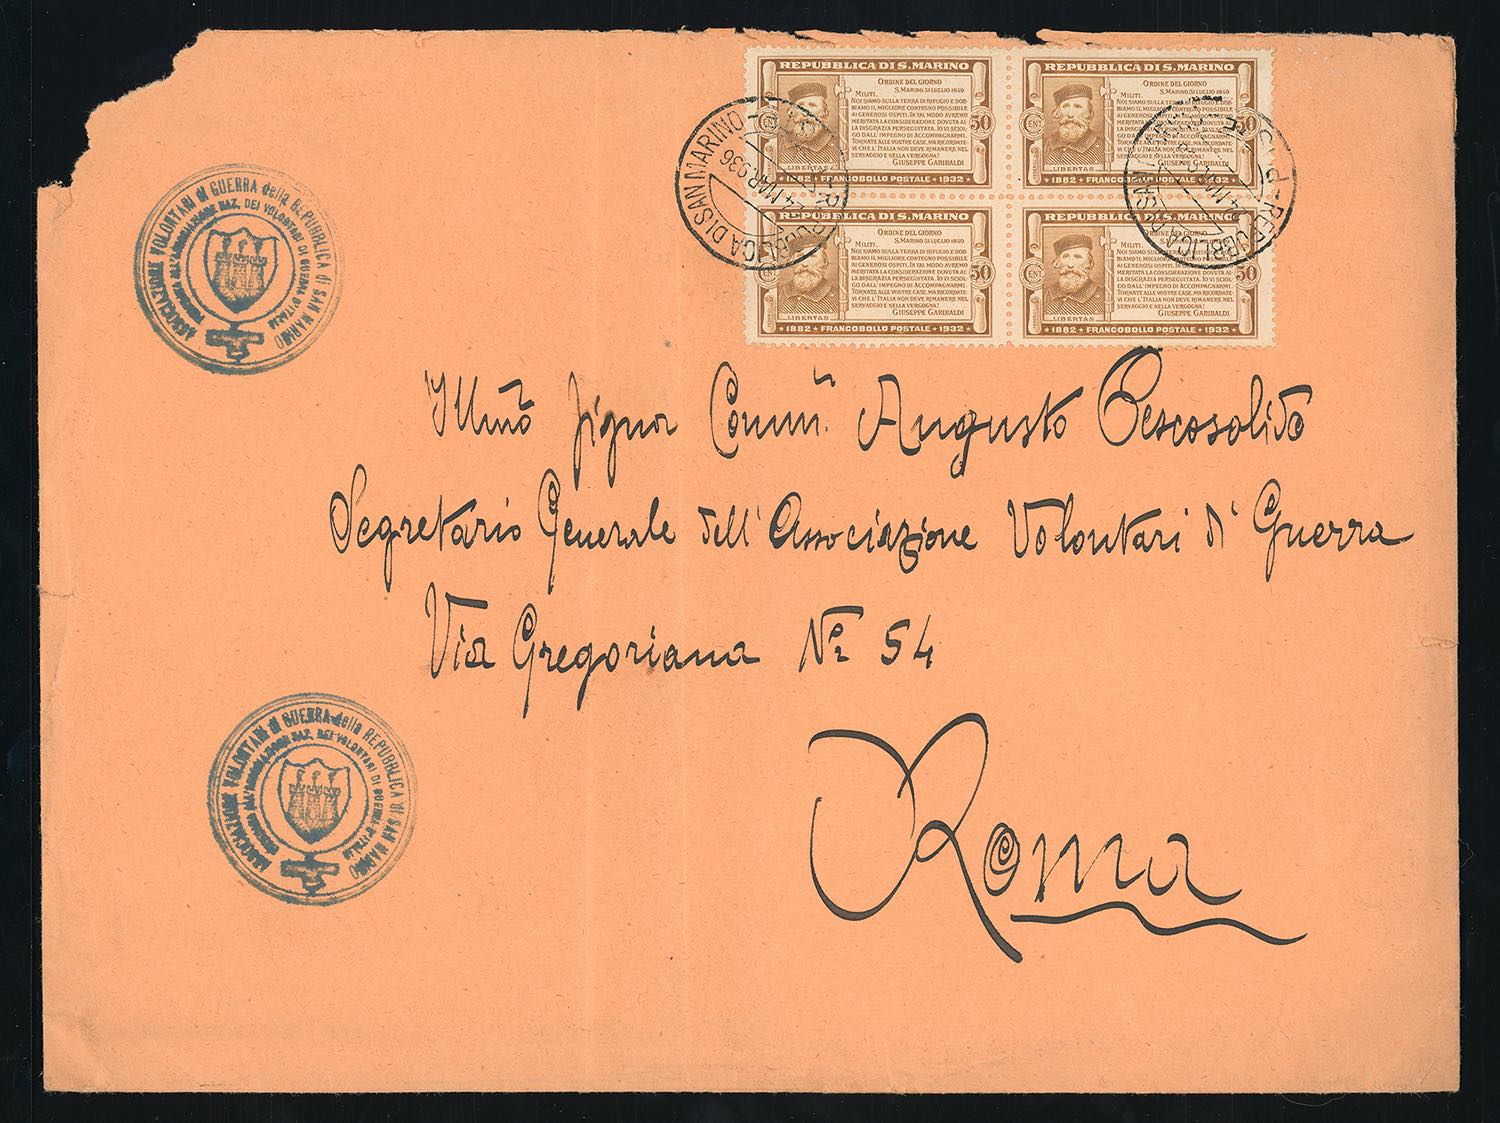 ASSOCIAZIONE VOLONTARI di GUERRA della REPUBBLICA di SAN MARINO
ALL'ASSOCIAZIONE NAZ. DEI VOLONTARI DI GUERRA D'ITALIA
REPUBBLICA DI S. MARINO
ORDINE DEL GIORNO
S. MARINO 31 LUGLIO 1849
MILITI.
NOI SIAMO SULLA TERRA DI RIFUGIO E DOB-
BIAMO IL MIGLIORE CONTEGNO POSSIBILE
AI GENEROSI OSPITI. IN TAL MODO AVREMO
MERITATA LA CONSIDERAZIONE DOVUTA AL-
LA DISGRAZIA PERSEGUITATA. IO VI SCIOL-
GO DALL'IMPEGNO DI ACCOMPAGNARMI.
TORNATE ALLE VOSTRE CASE, MA RICORDATE-
VI CHE L'ITALIA NON DEVE RIMANERE NEL
SERVAGGIO E NELLA VERGOGNA!
GIUSEPPE GARIBALDI
LIBERTAS
50
1882 * FRANCOBOLLO POSTALE * 1932
REPUBBLICA DI S. MARINO
ORDINE DEL GIORNO
S. MARINO 31 LUGLIO 1849
MILITI.
NOI SIAMO SULLA TERRA DI RIFUGIO E DOB-
BIAMO IL MIGLIORE CONTEGNO POSSIBILE
AI GENEROSI OSPITI. IN TAL MODO AVREMO
MERITATA LA CONSIDERAZIONE DOVUTA AL-
LA DISGRAZIA PERSEGUITATA. IO VI SCIOL-
GO DALL'IMPEGNO DI ACCOMPAGNARMI.
TORNATE ALLE VOSTRE CASE, MA RICORDATE-
VI CHE L'ITALIA NON DEVE RIMANERE NEL
SERVAGGIO E NELLA VERGOGNA!
GIUSEPPE GARIBALDI
LIBERTAS
50
1882 * FRANCOBOLLO POSTALE * 1932
REPUBBLICA DI S. MARINO
ORDINE DEL GIORNO
S. MARINO 31 LUGLIO 1849
MILITI.
NOI SIAMO SULLA TERRA DI RIFUGIO E DOB-
BIAMO IL MIGLIORE CONTEGNO POSSIBILE
AI GENEROSI OSPITI. IN TAL MODO AVREMO
MERITATA LA CONSIDERAZIONE DOVUTA AL-
LA DISGRAZIA PERSEGUITATA. IO VI SCIOL-
GO DALL'IMPEGNO DI ACCOMPAGNARMI.
TORNATE ALLE VOSTRE CASE, MA RICORDATE-
VI CHE L'ITALIA NON DEVE RIMANERE NEL
SERVAGGIO E NELLA VERGOGNA!
GIUSEPPE GARIBALDI
LIBERTAS
CENT. 50
* 1882 * FRANCOBOLLO POSTALE * 1932 *
REPUBBLICA DI S. MARINO
ORDINE DEL GIORNO
S. MARINO 31 LUGLIO 1849
MILITI.
NOI SIAMO SULLA TERRA DI RIFUGIO E DOB-
BIAMO IL MIGLIORE CONTEGNO POSSIBILE
AI GENEROSI OSPITI. IN TAL MODO AVREMO
MERITATA LA CONSIDERAZIONE DOVUTA AL-
LA DISGRAZIA PERSEGUITATA. IO VI SCIOL-
GO DALL'IMPEGNO DI ACCOMPAGNARMI.
TORNATE ALLE VOSTRE CASE, MA RICORDATE-
VI CHE L'ITALIA NON DEVE RIMANERE NEL
SERVAGGIO E NELLA VERGOGNA!
GIUSEPPE GARIBALDI
LIBERTAS
CENT. 50
* 1882 * FRANCOBOLLO POSTALE * 1932 *
REPUBBLICA DI SAN MARINO
24 MAR 936
Illmo Signor Comm. Augusto Pescosolido
Segretario Generale dell'Associazione Volontari di Guerra
Via Gregoriana No 54
Roma
ASSOCIAZIONE VOLONTARI di GUERRA della REPUBBLICA di SAN MARINO
ALL'ASSOCIAZIONE NAZ. DEI VOLONTARI DI GUERRA D'ITALIA